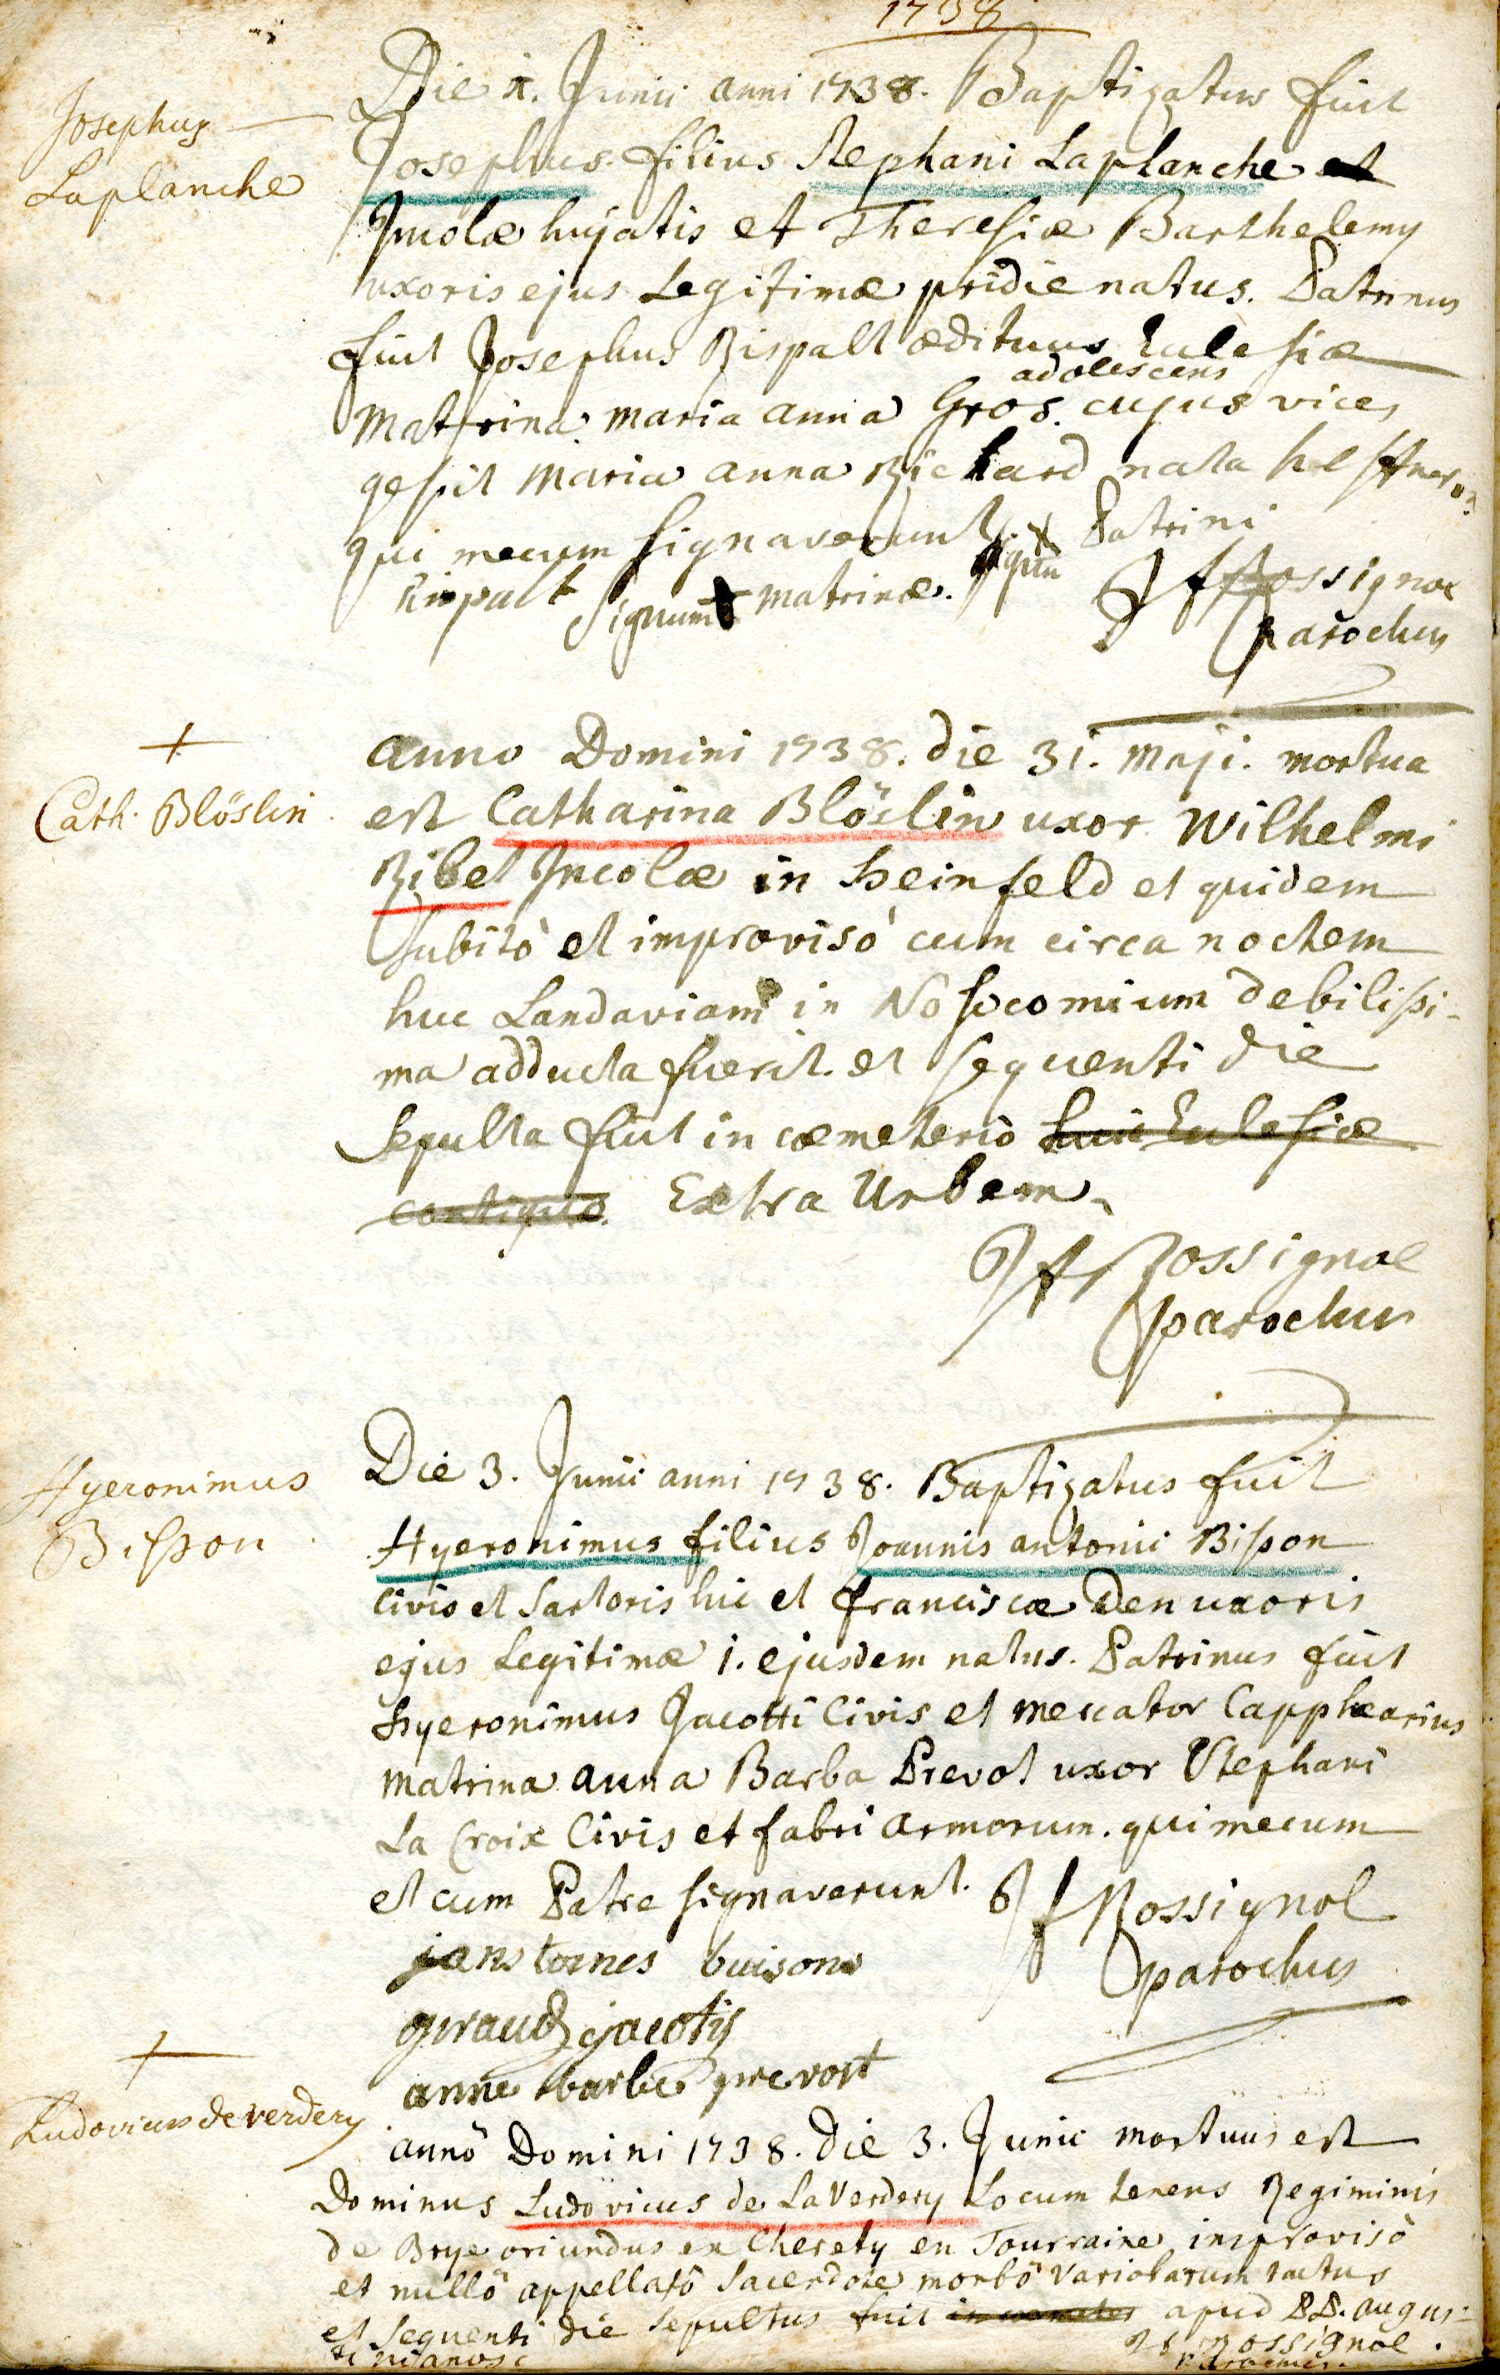 1738
Josephus
Laplanche
Die 1. Junii anni 1738. Baptizatus fuit
Josephus filius Stephani Laplanche et
Incolæ hujatis et Theresiæ Barthelemy
uxoris ejus Legitimæ pridie natus. Patrinus
fuit Josephus Rispalt ædituus Eclesiæ
adolescens
Matrina maria anna Gros. cujus vices
gessit Maria anna Richard nata
qui mecum signaverunt Patrini
Signum
Rispalt Signum + matrinæ.
Rossignol
parochus
+
Cath. Blöslin
anno Domini 1738. die 31. Maji. mortua
est Catharina Blöslin uxor Wilhelmi
Ribet Incolæ in Heinfeld et quidem
subitò et improvisò cum circa noctem
huc Landaviam in Nosocomium debilissi-
ma adducta fuerit. et sequenti die
sepulta fuit in cœmeterio huic Eclesiæ
contiguo Extra Urbem.
Rossignol
parochus
Hyeronimus
Bisson
Die 3. Junii anni 1738. Baptizatus fuit
Hyeronimus filius Joannis antonii Bisson
Civis et Sartoris hic et franciscæ Den uxoris
ejus Legitimæ 1. ejusdem natus. Patrinus fuit
Hyeronimus Jacotti Civis et Mercator Capphearius
Matrina anna Barba Prevot uxor Stephani
La Croix Civis et fabri armorum. qui mecum
et cum Patre signaverunt.
Rossignol
parochus
jans tornes buison
giraud jacotis
anne barbe prevost
+
Ludovicus de verdery
annô Domini 1738. Die 3. Junii mortuus est
Dominus Ludovicus de LaVerdery Locum tenens Regiminis
de Brye oriundus ex Cherety en Tourraine improvisô
et nullô appellatô Sacerdote morbô Variolarum tactus
et sequenti die sepultus fuit apud PP. augus-
tinianos
Rossignol.
parochus.